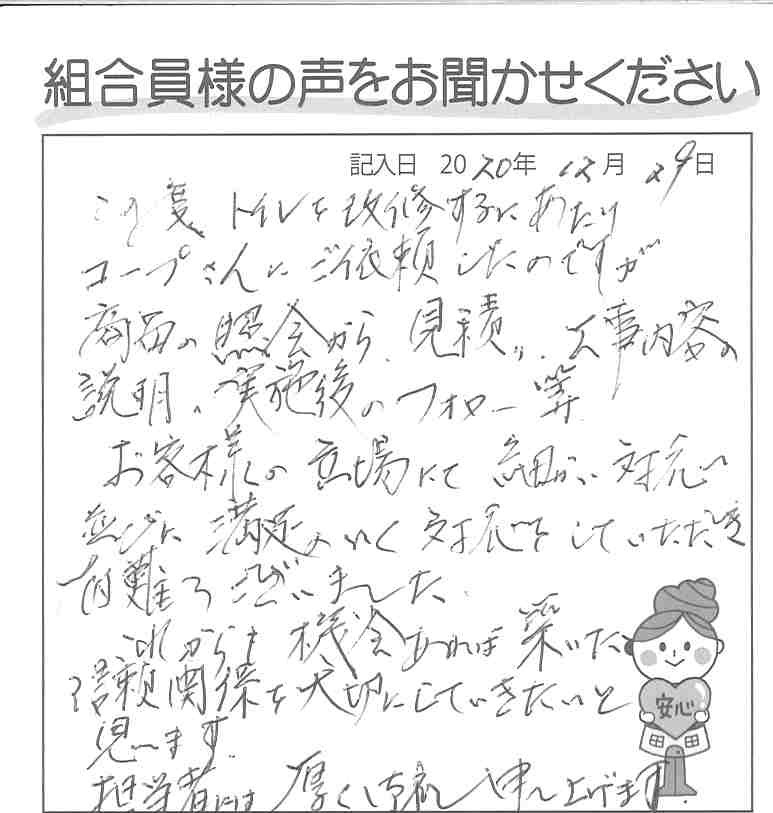 組合員様の声をお聞かせください
記入日 2020年 12月 29日
この度 トイレを改修するにあたり
コープさんにご依頼したのですが
商品の照会から、見積り、工事内容の
説明、実施後のフォロー等
お客様の立場にて 細かい対応
並びに 満足のいく対応をしていただき
有難うございました。
これからも 機会あれば 築いた
信頼関係を大切にしていきたいと
思います。
担当者には 厚く御礼 申し上げます。
安心